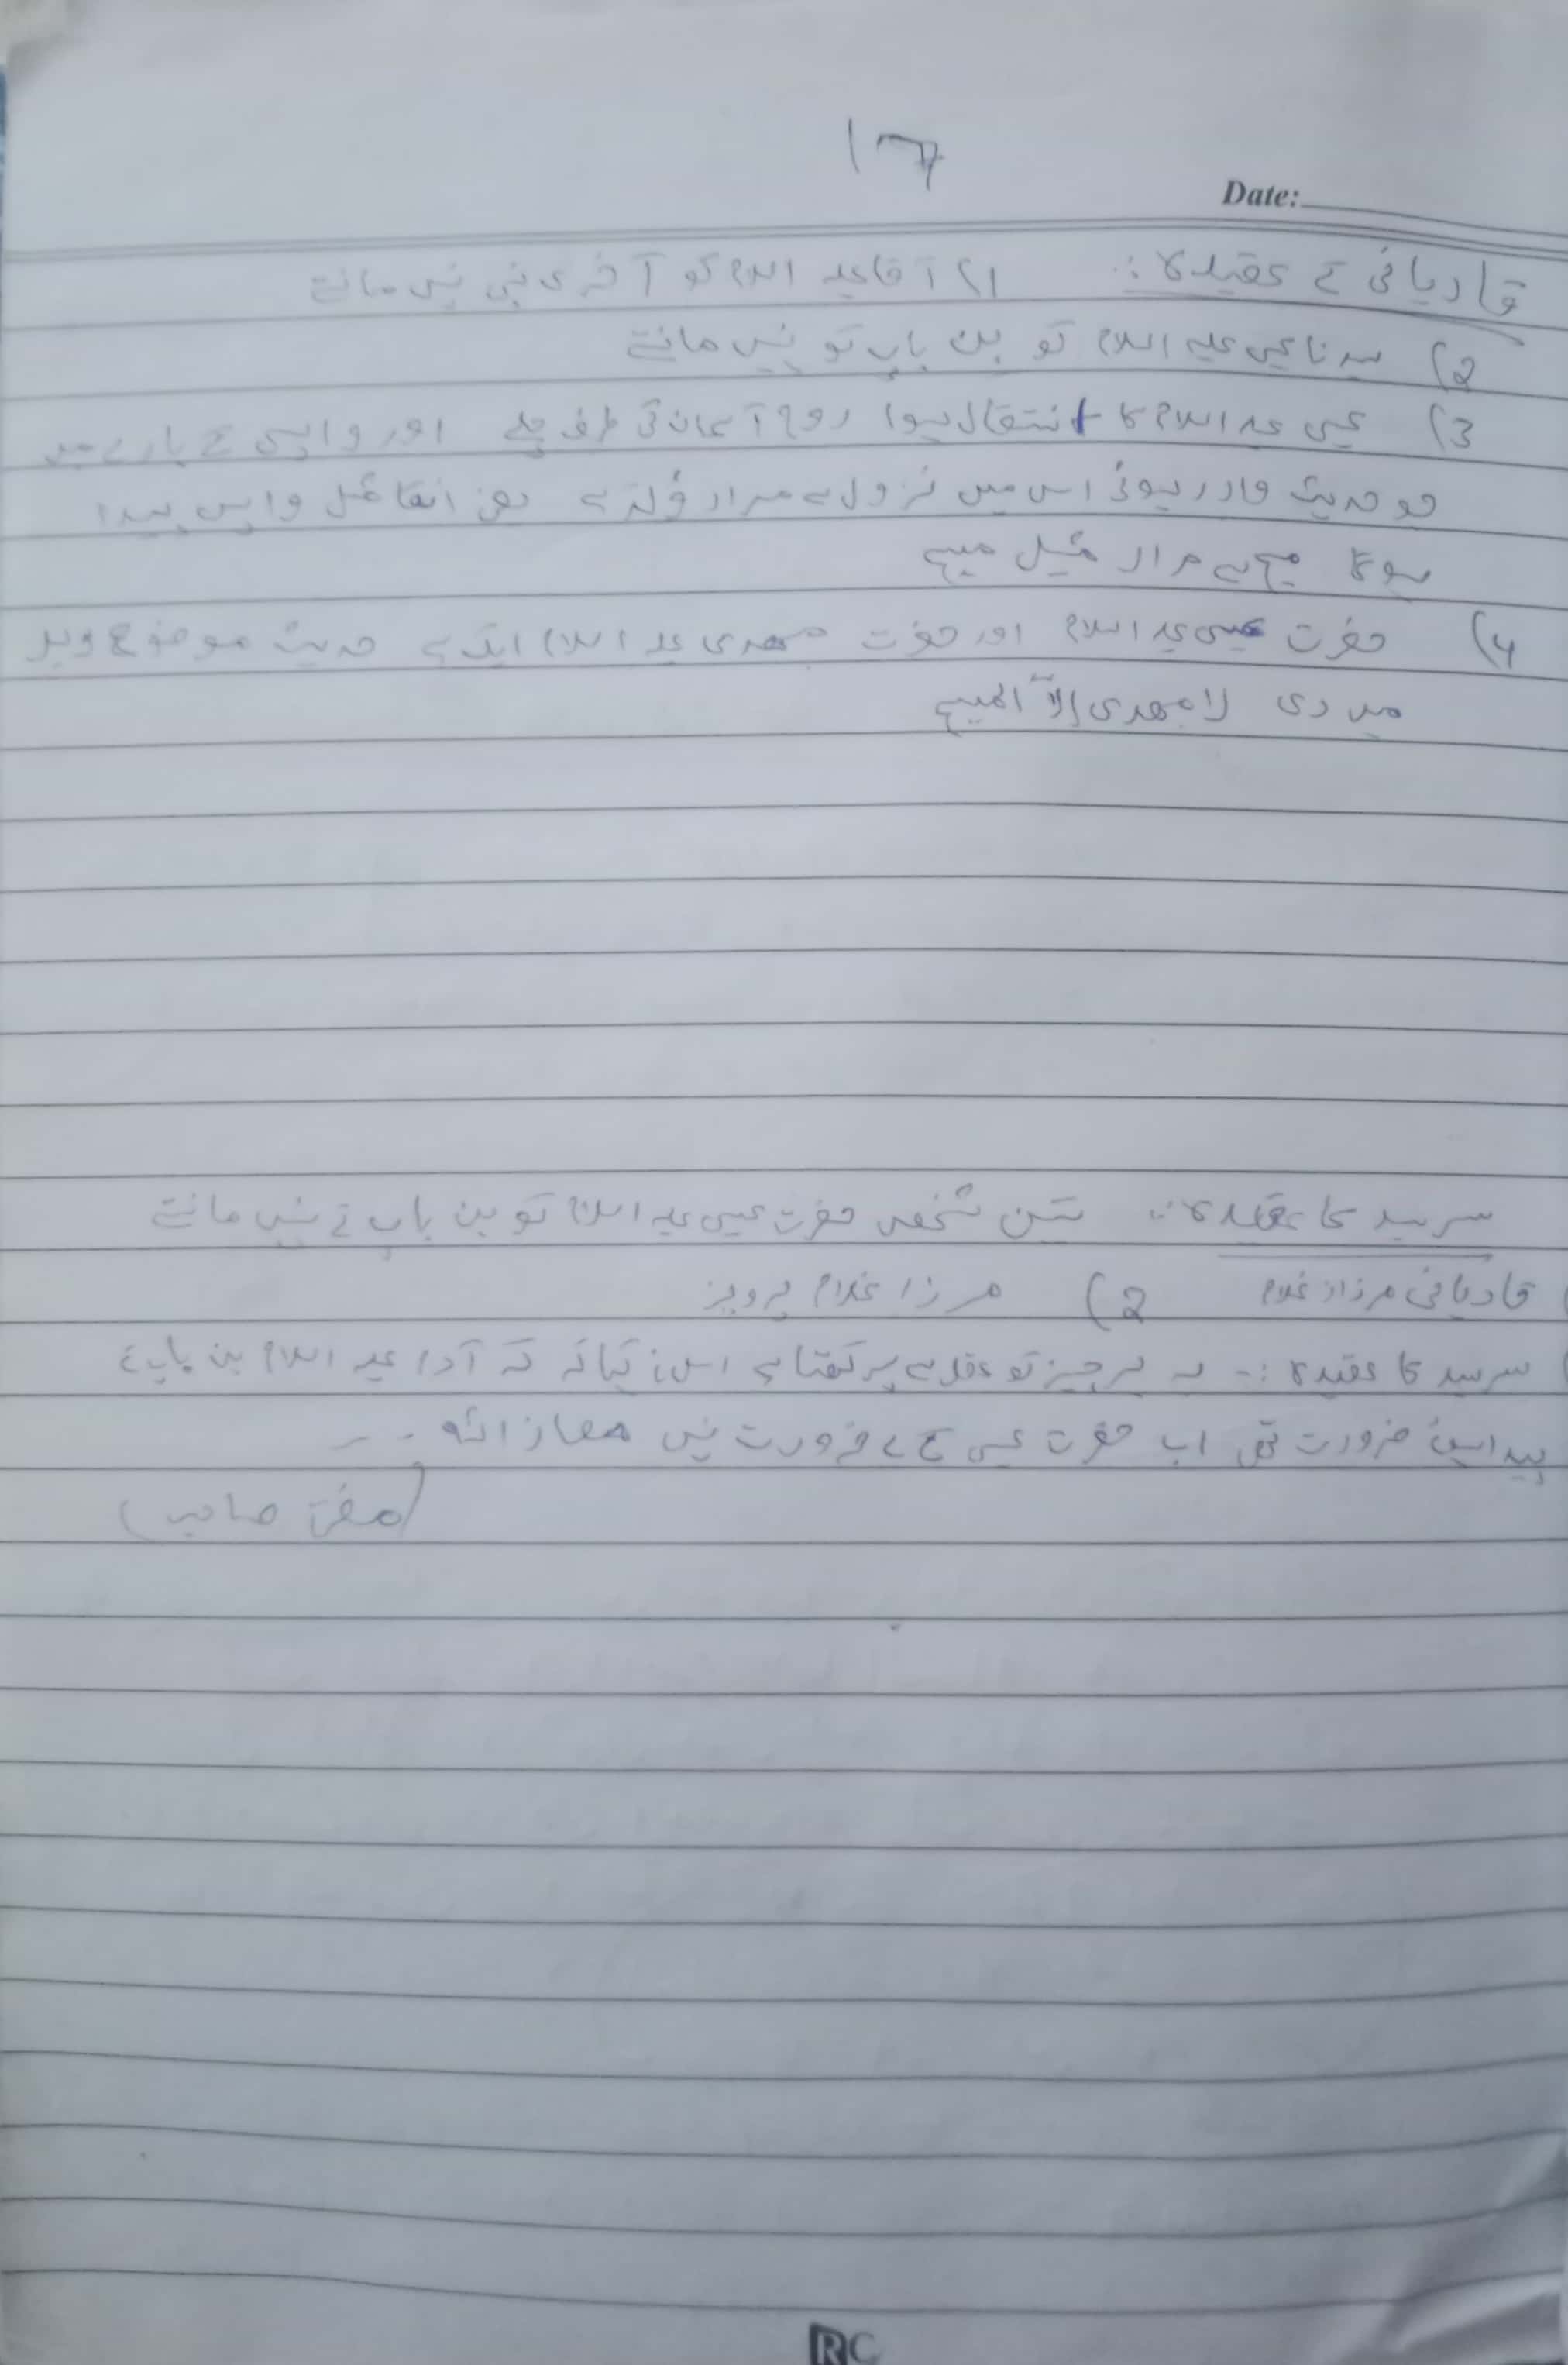 17
Date:
قادیانی کے عقیدہ: 1) آقا علیہ السلام کو آخری نبی نہیں مانتے
2) سیدنا عیسی علیہ السلام کو بن باپ کے نہیں مانتے
3) عیسی علیہ السلام کا انتقال ہوا روح آسمان کی طرف چلی اور واپسی کے بارے میں
جو حدیث وارد ہوئی اس میں نزول سے مراد واپس پیدا
ہوگا مسیح سے مراد مثیل مسیح
4) حضرت عیسی علیہ السلام اور حضرت مھدی علیہ السلام ایک ہے حدیث موضوع
میں دی لا مھدی إلا المسیح
سرسید کا عقیدہ:۔ تین شخص حضرت عیسی علیہ السلام کو بن باپ کے نہیں مانتے
قادیانی مرزا غلام 2) مرزا غلام پرویز
سرسید کا عقیدہ :۔ یہ ہر چیز کو عقل سے پرکھتا ہے اس نے کہا کہ آدم علیہ السلام بن باپ کے
پیدا ضرورت تھی اب حضرت عیسی کے ضرورت نہیں معاذ اللہ
(مفتی صاحب)
RC